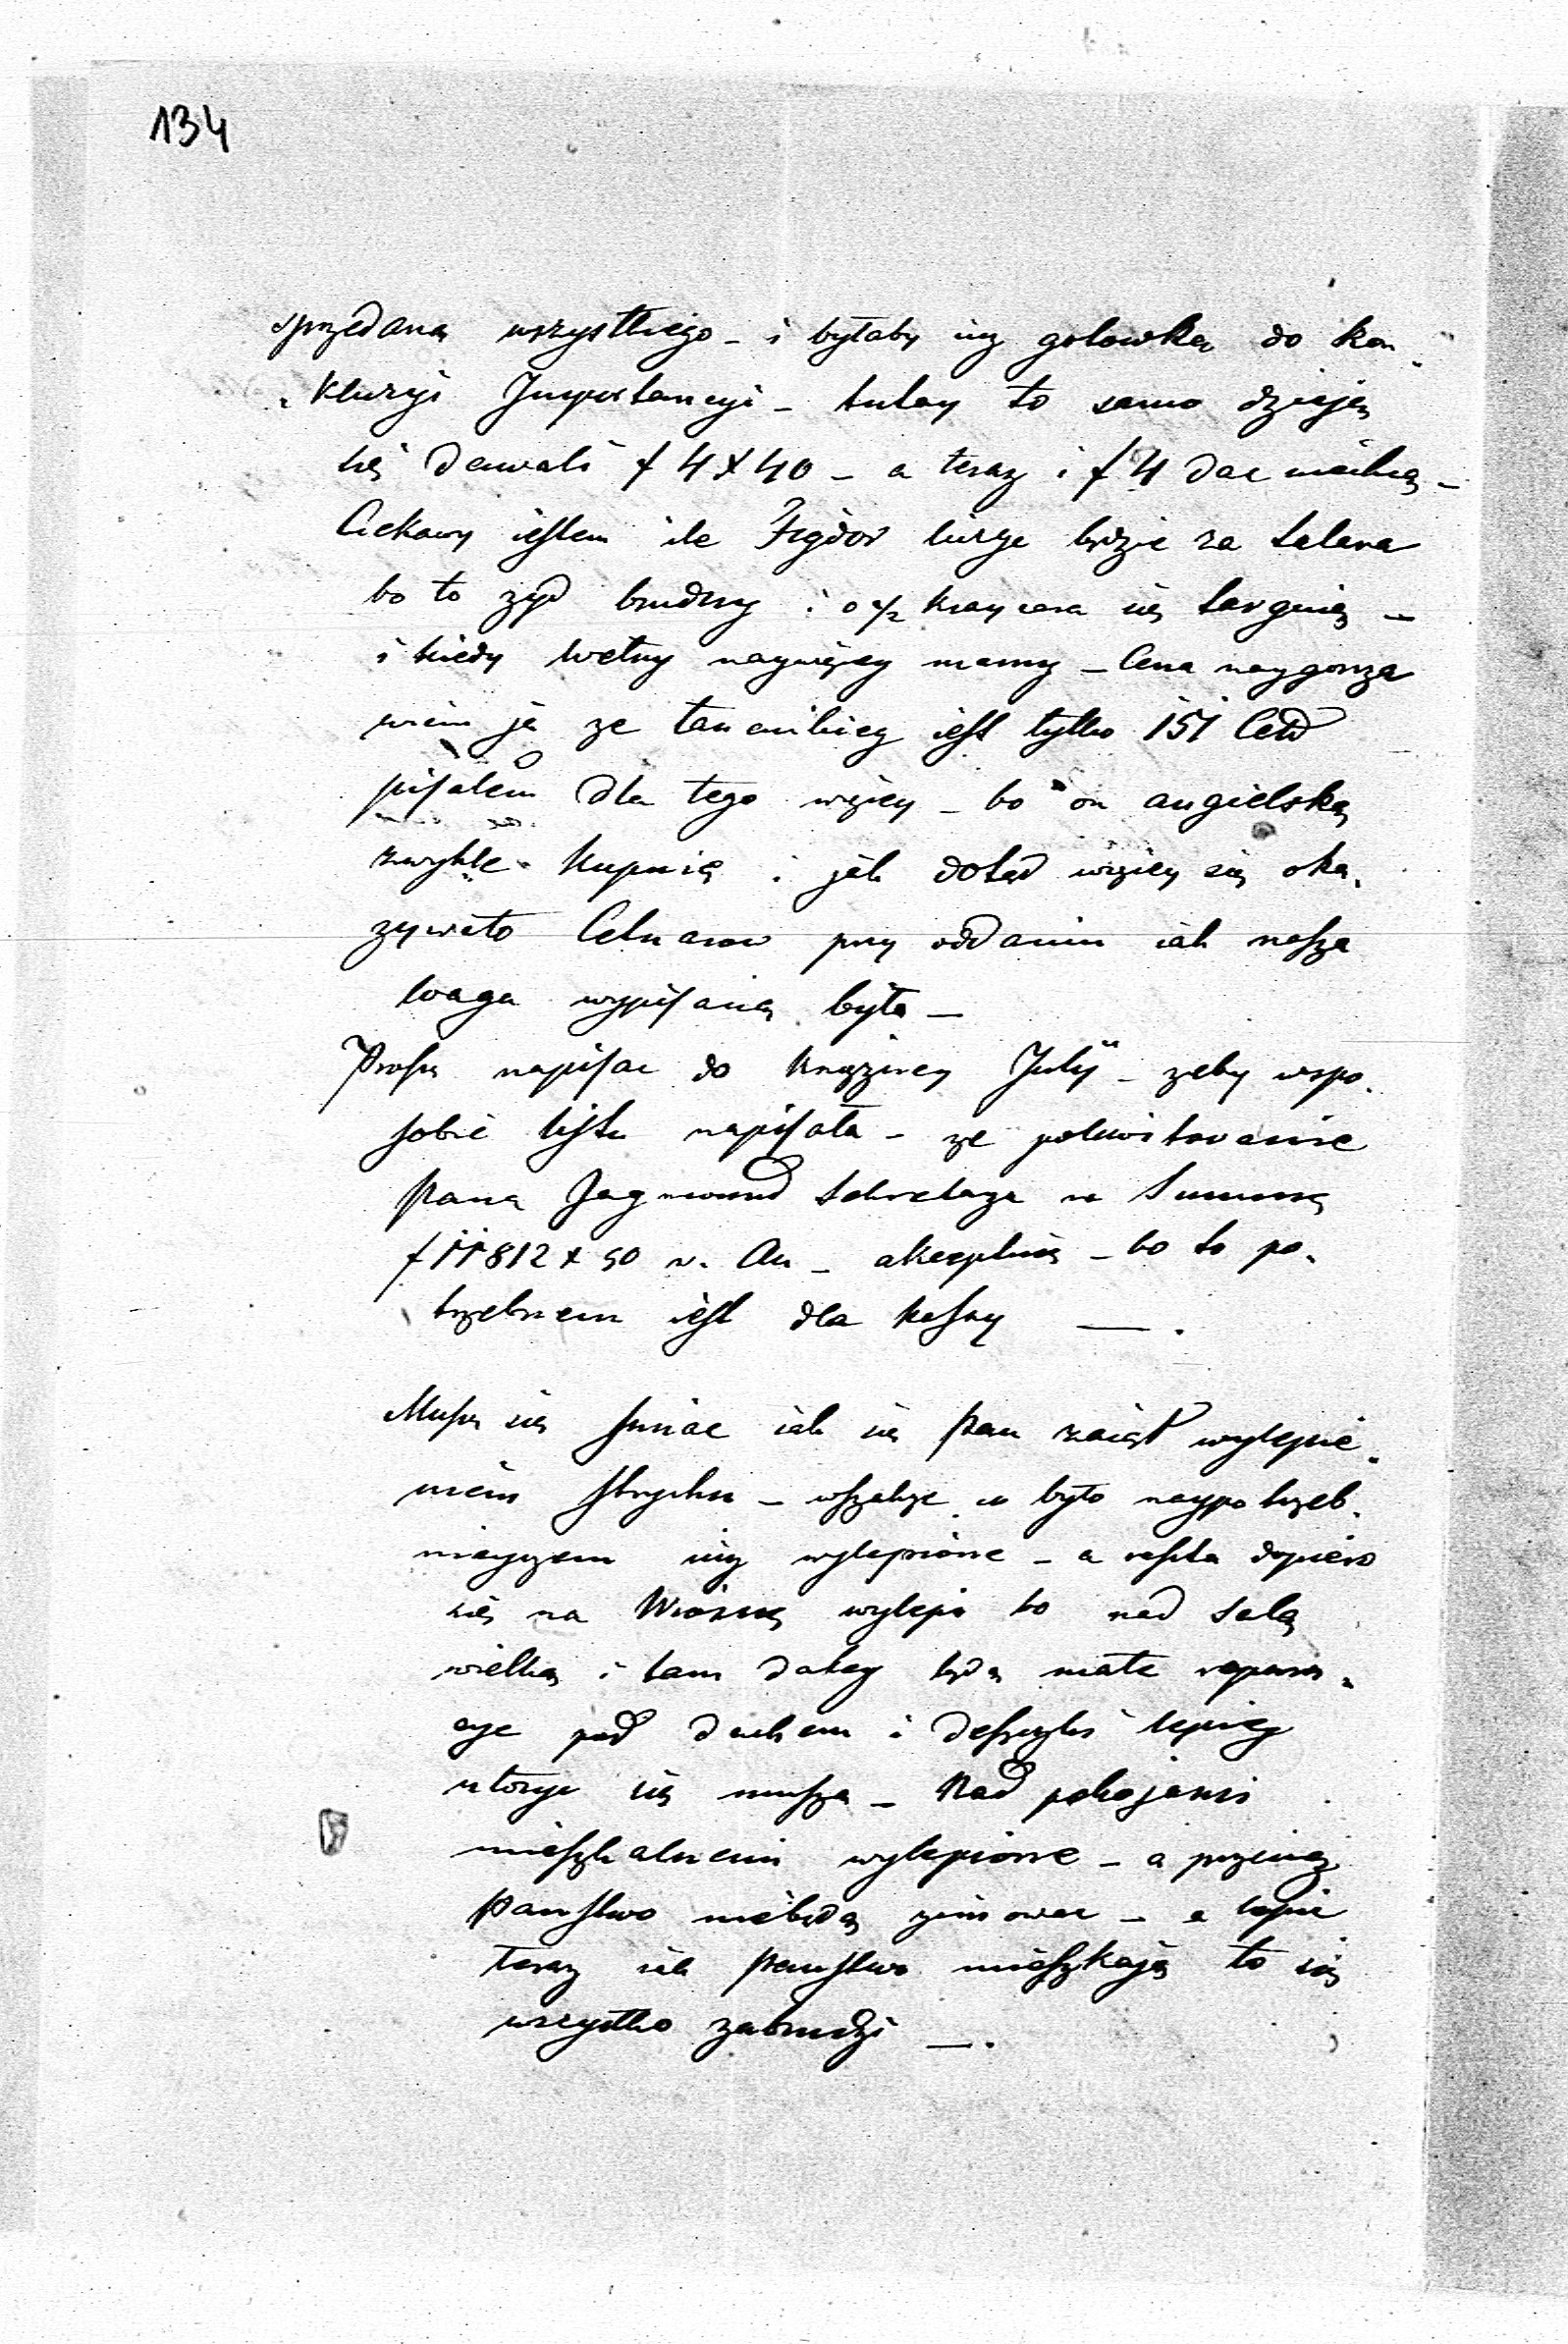 134
sprzedana wszystkiego - i byłaby iuz gotowka do kon-
-kluzyi Importancyi - tutay to samo dzieje
się dawali f 4 x 40 - a teraz i f 4 dac niechcą -
Ciekawy iestem ile Figdor liczyc będzie za talara
bo to zyd brudny i o ½ kraycara się targuie -
i kiedy wełny naywięcy mamy - Cena naygorsza
wiem ja ze tameikiey iest tylko 151 Cetn
pisałem dla tego więcey - bo on angielską
zwykle kupuie i jak dotąd więcey się oka-
zywało Cetnarow przy oddaniu iak nasza
waga wypisaną była -
Proszę napisac do Xnęzney Julij - zeby wspo-
sobie listu napisała - ze pokwitowanie
Pana Jagmund Sekretarza w Summie
f 11812 x 50 v. Au - akceptuie - bo to po-
trzebnem iest dla Kassy -.
Muszę się smiac iak się Pan zaiął wylepie-
niem strychu - wszakze co było naypotrzeb-
nieyszem iuz wylepione - a reszta dopiero
się na Wiosnę wylepi bo nad Salą
wielką i tam daley będą małe repara-
cye pod dachem i deszczki lepiey
ułozyc się muszą - Nad pokojami
mieszkalnemi wylepione - a przeciez
Panstwo niebędą zimowac - a lepic
teraz iak Panstwo mieszkają to się
wszystko zabrudzi -.